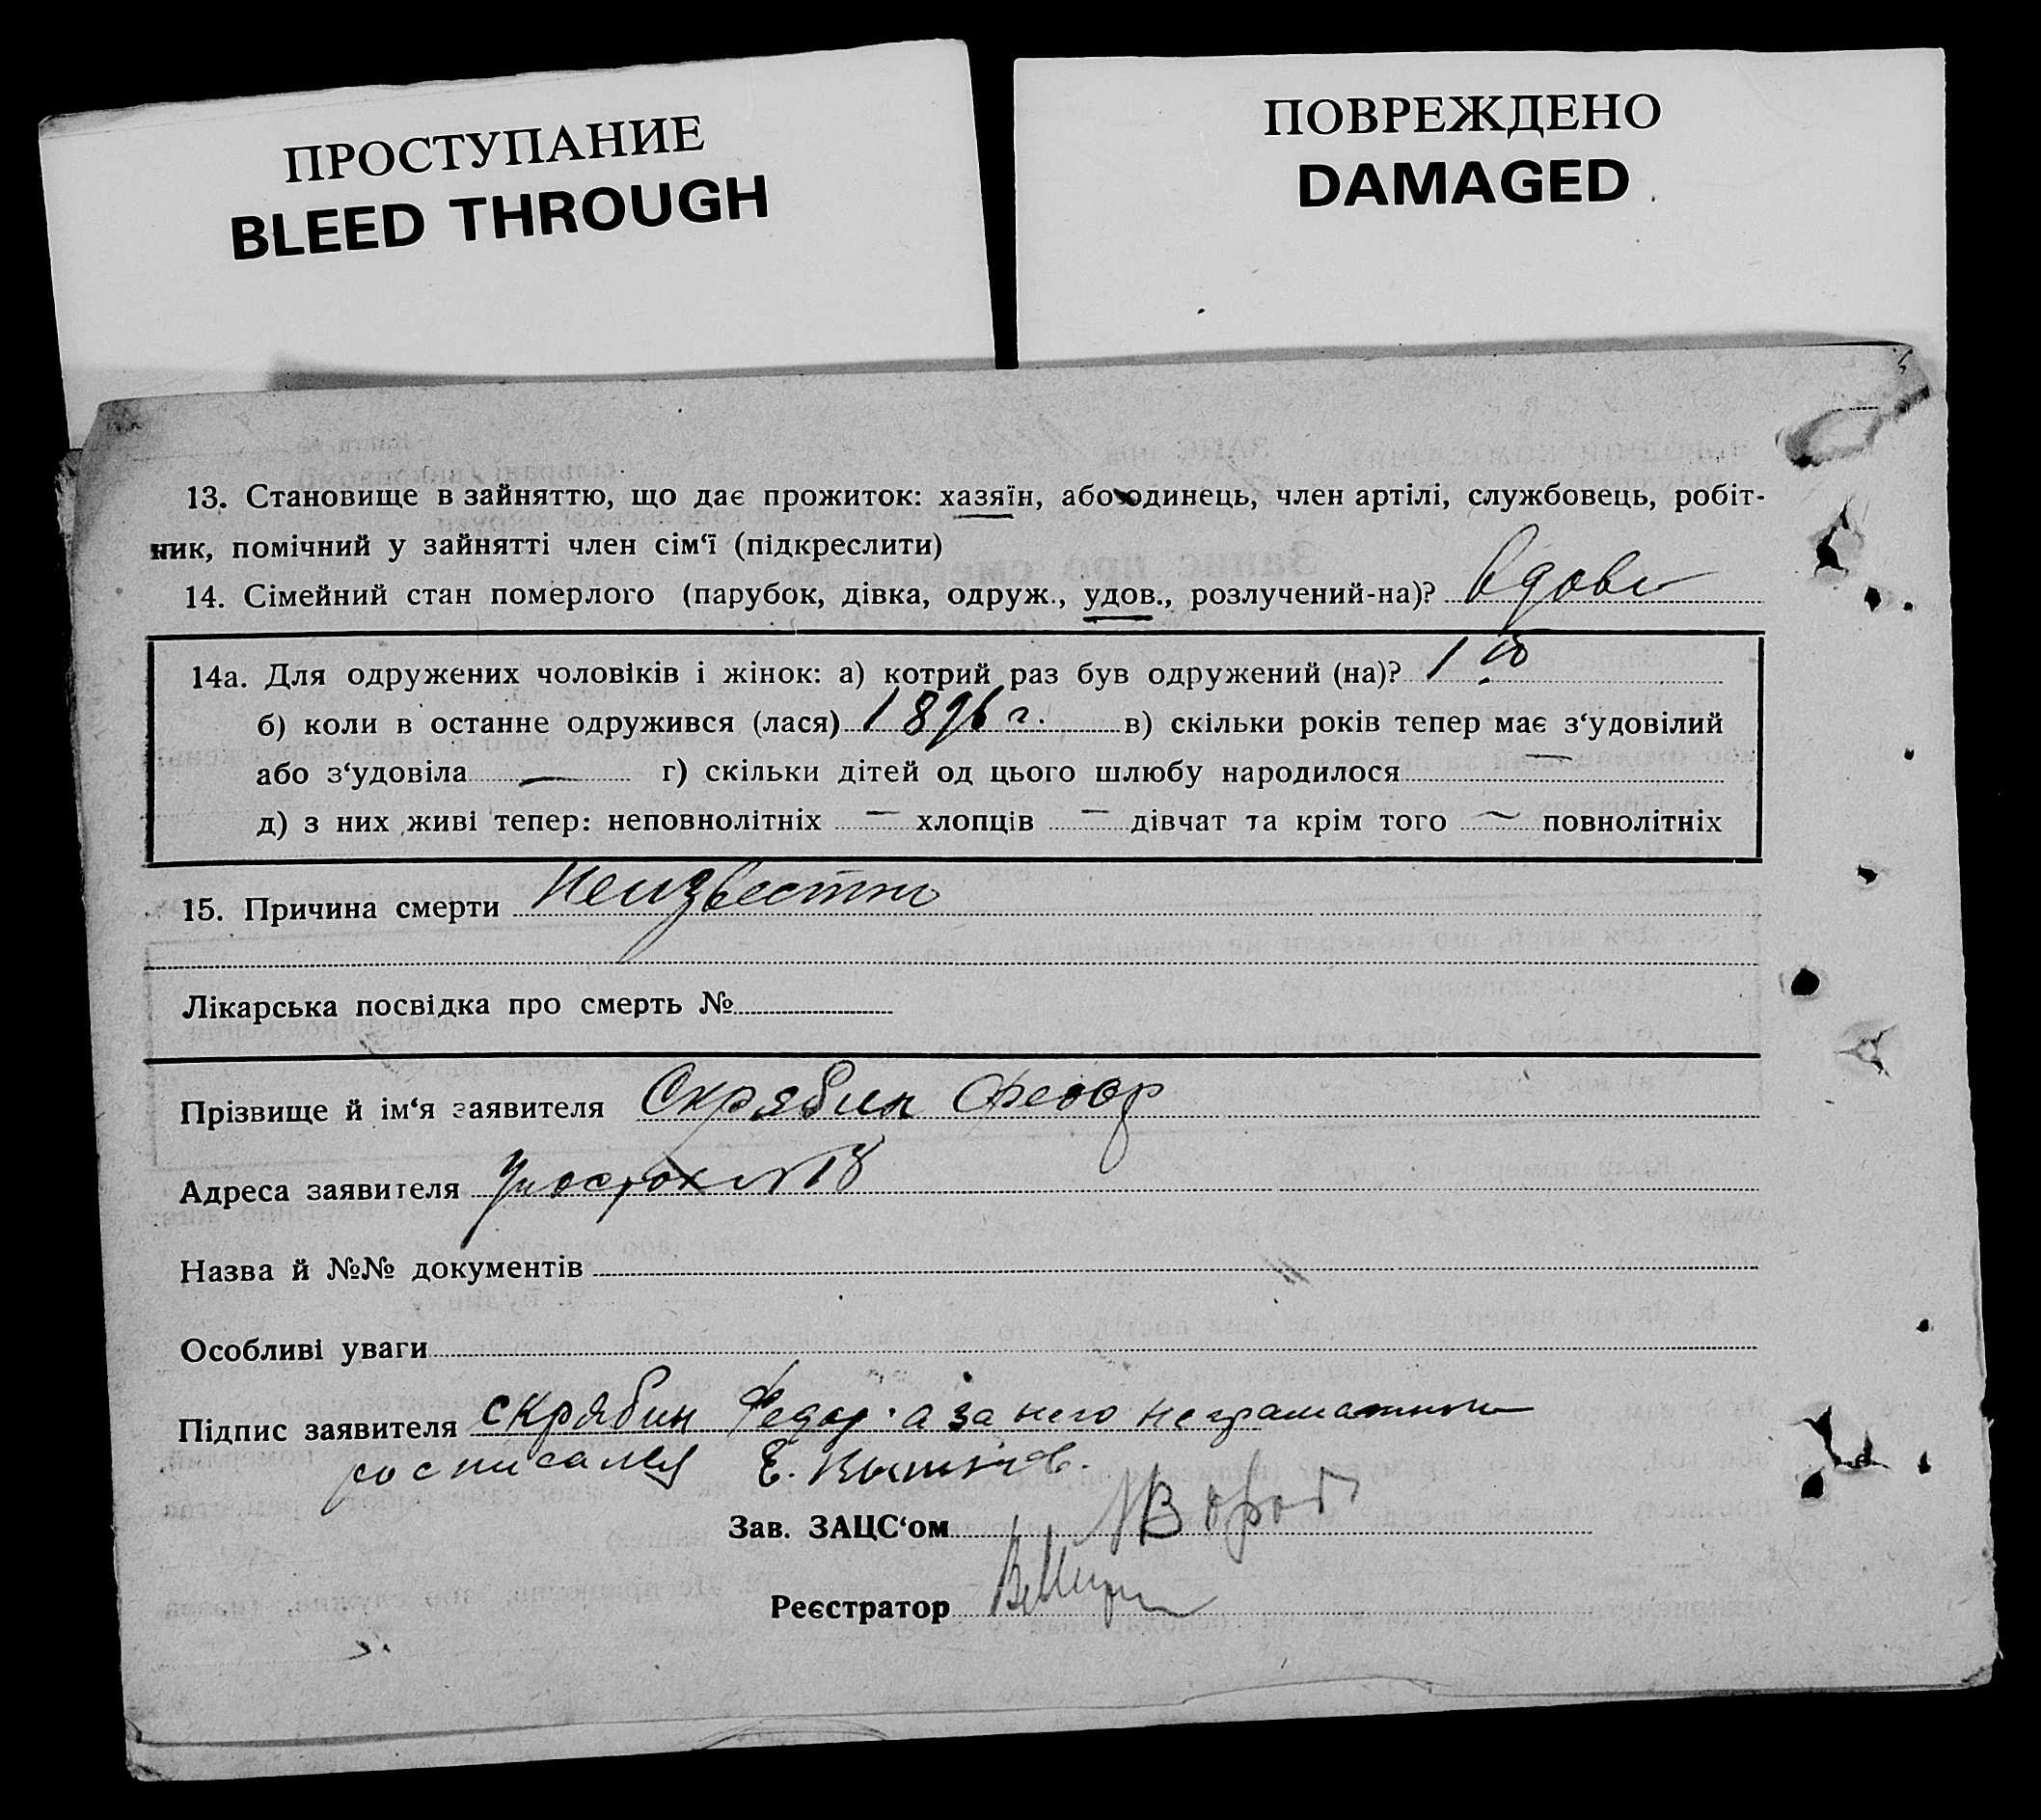 ПРОСТУПАНИЕ
BLEED THROUGH
ПОВРЕЖДЕНО
DAMAGED
13. Становище в зайняттю, що дає прожиток: хазяїн, або одинець, член артілі, службовець, робіт-
ник, помічний у зайнятті член сім‘ї (підкреслити)
14. Сімейний стан померлого (парубок, дівка, одруж., удов., розлучений-на)? вдова
14а. Для одружених чоловіків і жінок: а) котрий раз був одружений (на)? 1
б) коли в останне одружився (лася) 1896 г. в) скільки років тепер має з‘удовілий
або з‘удовіла — г) скільки дітей од цього шлюбу народилося —
д) з них живі тепер: неповнолітніх — хлопців — дівчат та крім того — повнолітніх
15. Причина смерти Неизвестно
Лікарська посвідка про смерть №
Прізвище й ім‘я заявителя Скрябин Федор
Адреса заявителя №18
Назва й №№ документів
Особливі уваги
Підпис заявителя Скрябин Федор. а за него неграматного
росписался Е.
Зав. ЗАЦС‘ом
Реєстратор